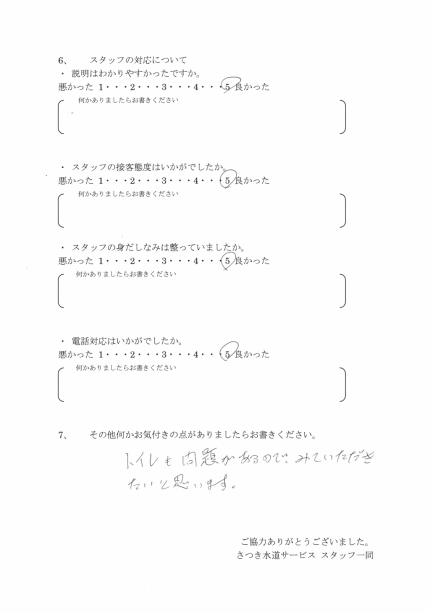 6、 スタッフの対応について
・ 説明はわかりやすかったですか。
悪かった 1・・・2・・・3・・・4・・・5 良かった
何かありましたらお書きください
・ スタッフの接客態度はいかがでしたか。
悪かった 1・・・2・・・3・・・4・・・5 良かった
何かありましたらお書きください
・ スタッフの身だしなみは整っていましたか。
悪かった 1・・・2・・・3・・・4・・・5 良かった
何かありましたらお書きください
・ 電話対応はいかがでしたか。
悪かった 1・・・2・・・3・・・4・・・5 良かった
何かありましたらお書きください
7、 その他何かお気付きの点がありましたらお書きください。
トイレも問題があるので、みていただき
たいと思います。
ご協力ありがとうございました。
さつき水道サービス スタッフ一同